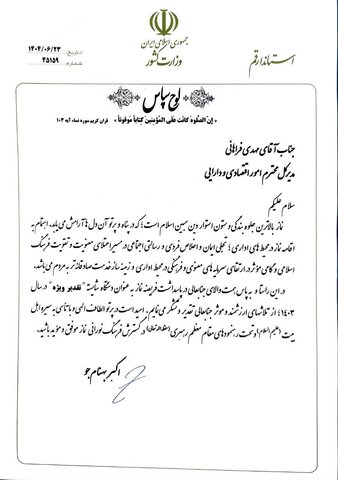 جمهوری اسلامی ایران
وزارت کشور
استاندار قم
تاریخ: ۱۴۰۴/۰۶/۲۳
شماره: ۴۵۱۵۹
لوح سپاس
« اِنَّ الصَّلوةَ کانَت عَلَی المُؤمِنینَ کِتاباً مَوقوتاً » قرآن کریم سوره نساء آیه ۱۰۳
جناب آقای مهدی فراهانی
مدیرکل محترم امور اقتصادی و دارایی
سلام علیکم
نماز بالاترین جلوه بندگی و ستون استوار دین مبین اسلام است؛ که در پناه و پرتو آن دل‌ها آرامش می‌یابد. اهتمام به
اقامه نماز در محیط‌های اداری؛ تجلی ایمان و اخلاص فردی و رسالتی اجتماعی در مسیر اعتلای معنویت و تقویت فرهنگ
اسلامی و گامی مؤثر در ارتقای سرمایه‌های معنوی و فرهنگی در محیط اداری و زمینه ساز خدمت صادقانه‌تر به مردم می‌باشد.
در این راستا و به پاس همت والای جنابعالی در پاسداشت فریضه نماز به عنوان دستگاه شایسته "تقدیر ویژه" در سال
۱۴۰۳؛ از تلاشهای ارزشمند و موثر جنابعالی تقدیر و تشکر می‌نمایم. امید است در پرتو الطاف الهی و با تأسی به سیره اهل
بیت (علیهم السلام) و تحت رهنمودهای مقام معظم رهبری (مدظله العالی) در گسترش فرهنگ نورانی نماز موفق و مؤید باشید.
اکبر بهنام جو